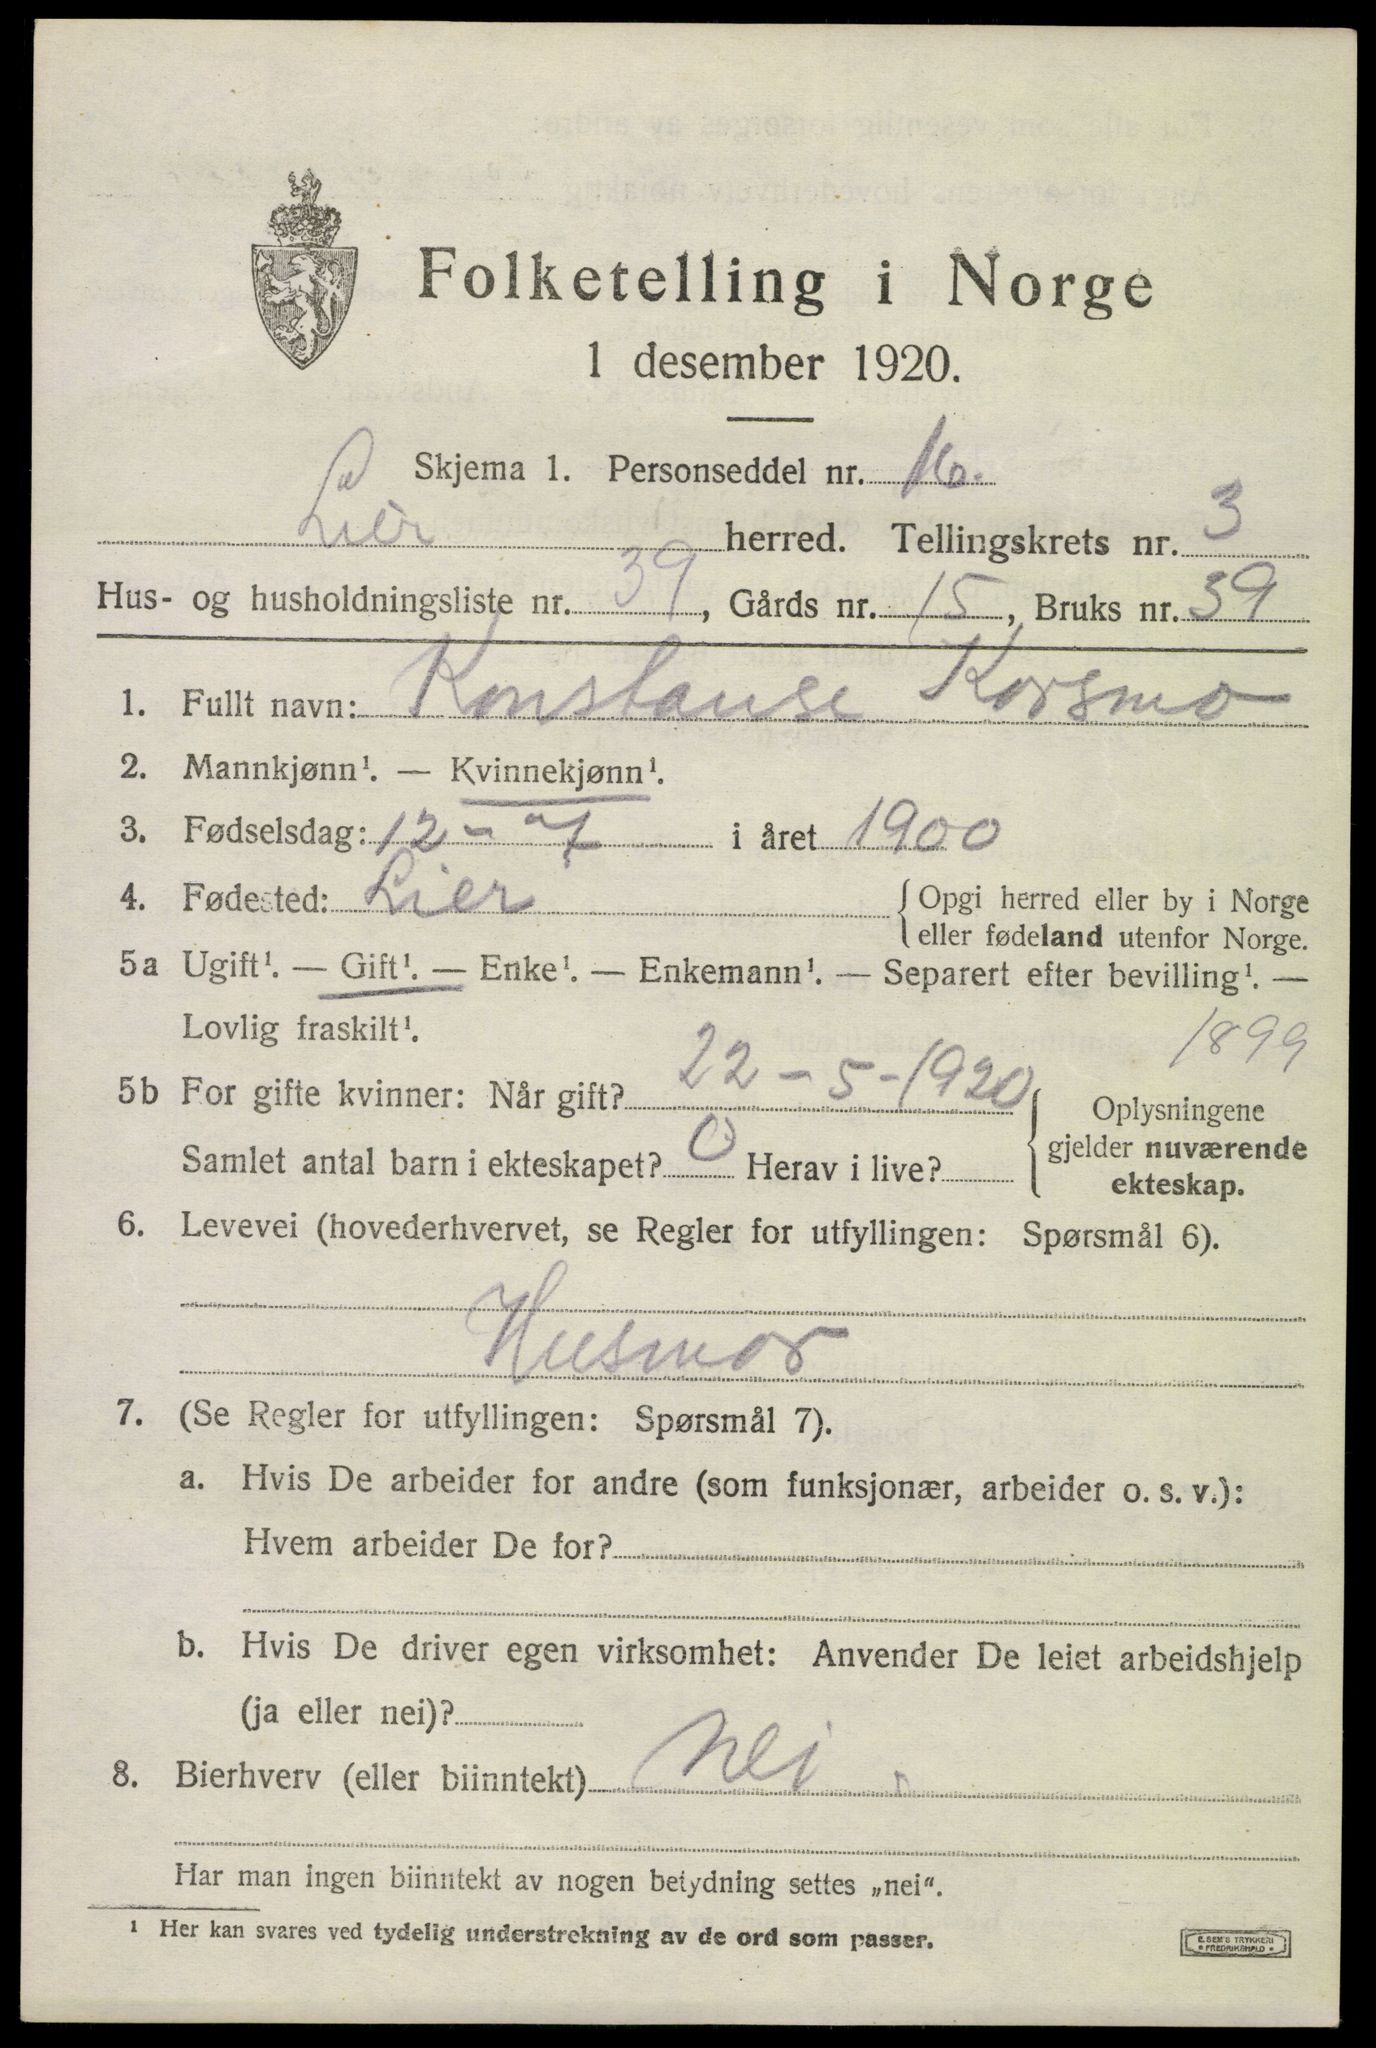 Folketelling i Norge
1 desember 1920.
Skjema 1. Personseddel nr. 16.
Lier herred. Tellingskrets nr. 3
Hus- og husholdningsliste nr. 39, Gårds nr. 15, Bruks nr. 39
1. Fullt navn: Konstanse Korsmo
2. Mannkjønn¹. — Kvinnekjønn¹.
3. Fødselsdag: 12 - 7 i året 1900
4. Fødested: Lier { Opgi herred eller by i Norge
eller fødeland utenfor Norge.
5a Ugift¹. — Gift¹. — Enke¹. — Enkemann¹. — Separert efter bevilling¹. —
Lovlig fraskilt¹.
1899
5b For gifte kvinner: Når gift? 22 - 5 - 1920
Samlet antal barn i ekteskapet? 0 Herav i live?
{ Oplysningene
gjelder nuværende
ekteskap.
6. Levevei (hovederhvervet, se Regler for utfyllingen: Spørsmål 6).
Husmor
7. (Se Regler for utfyllingen: Spørsmål 7).
a. Hvis De arbeider for andre (som funksjonær, arbeider o. s. v.):
Hvem arbeider De for?
b. Hvis De driver egen virksomhet: Anvender De leiet arbeidshjelp
(ja eller nei)?
8. Bierhverv (eller biinntekt) Nei.
Har man ingen biinntekt av nogen betydning settes „nei“.
¹ Her kan svares ved tydelig understrekning av de ord som passer.
E. SEM'S TRYKKERI
* FREDRIKSHALD *